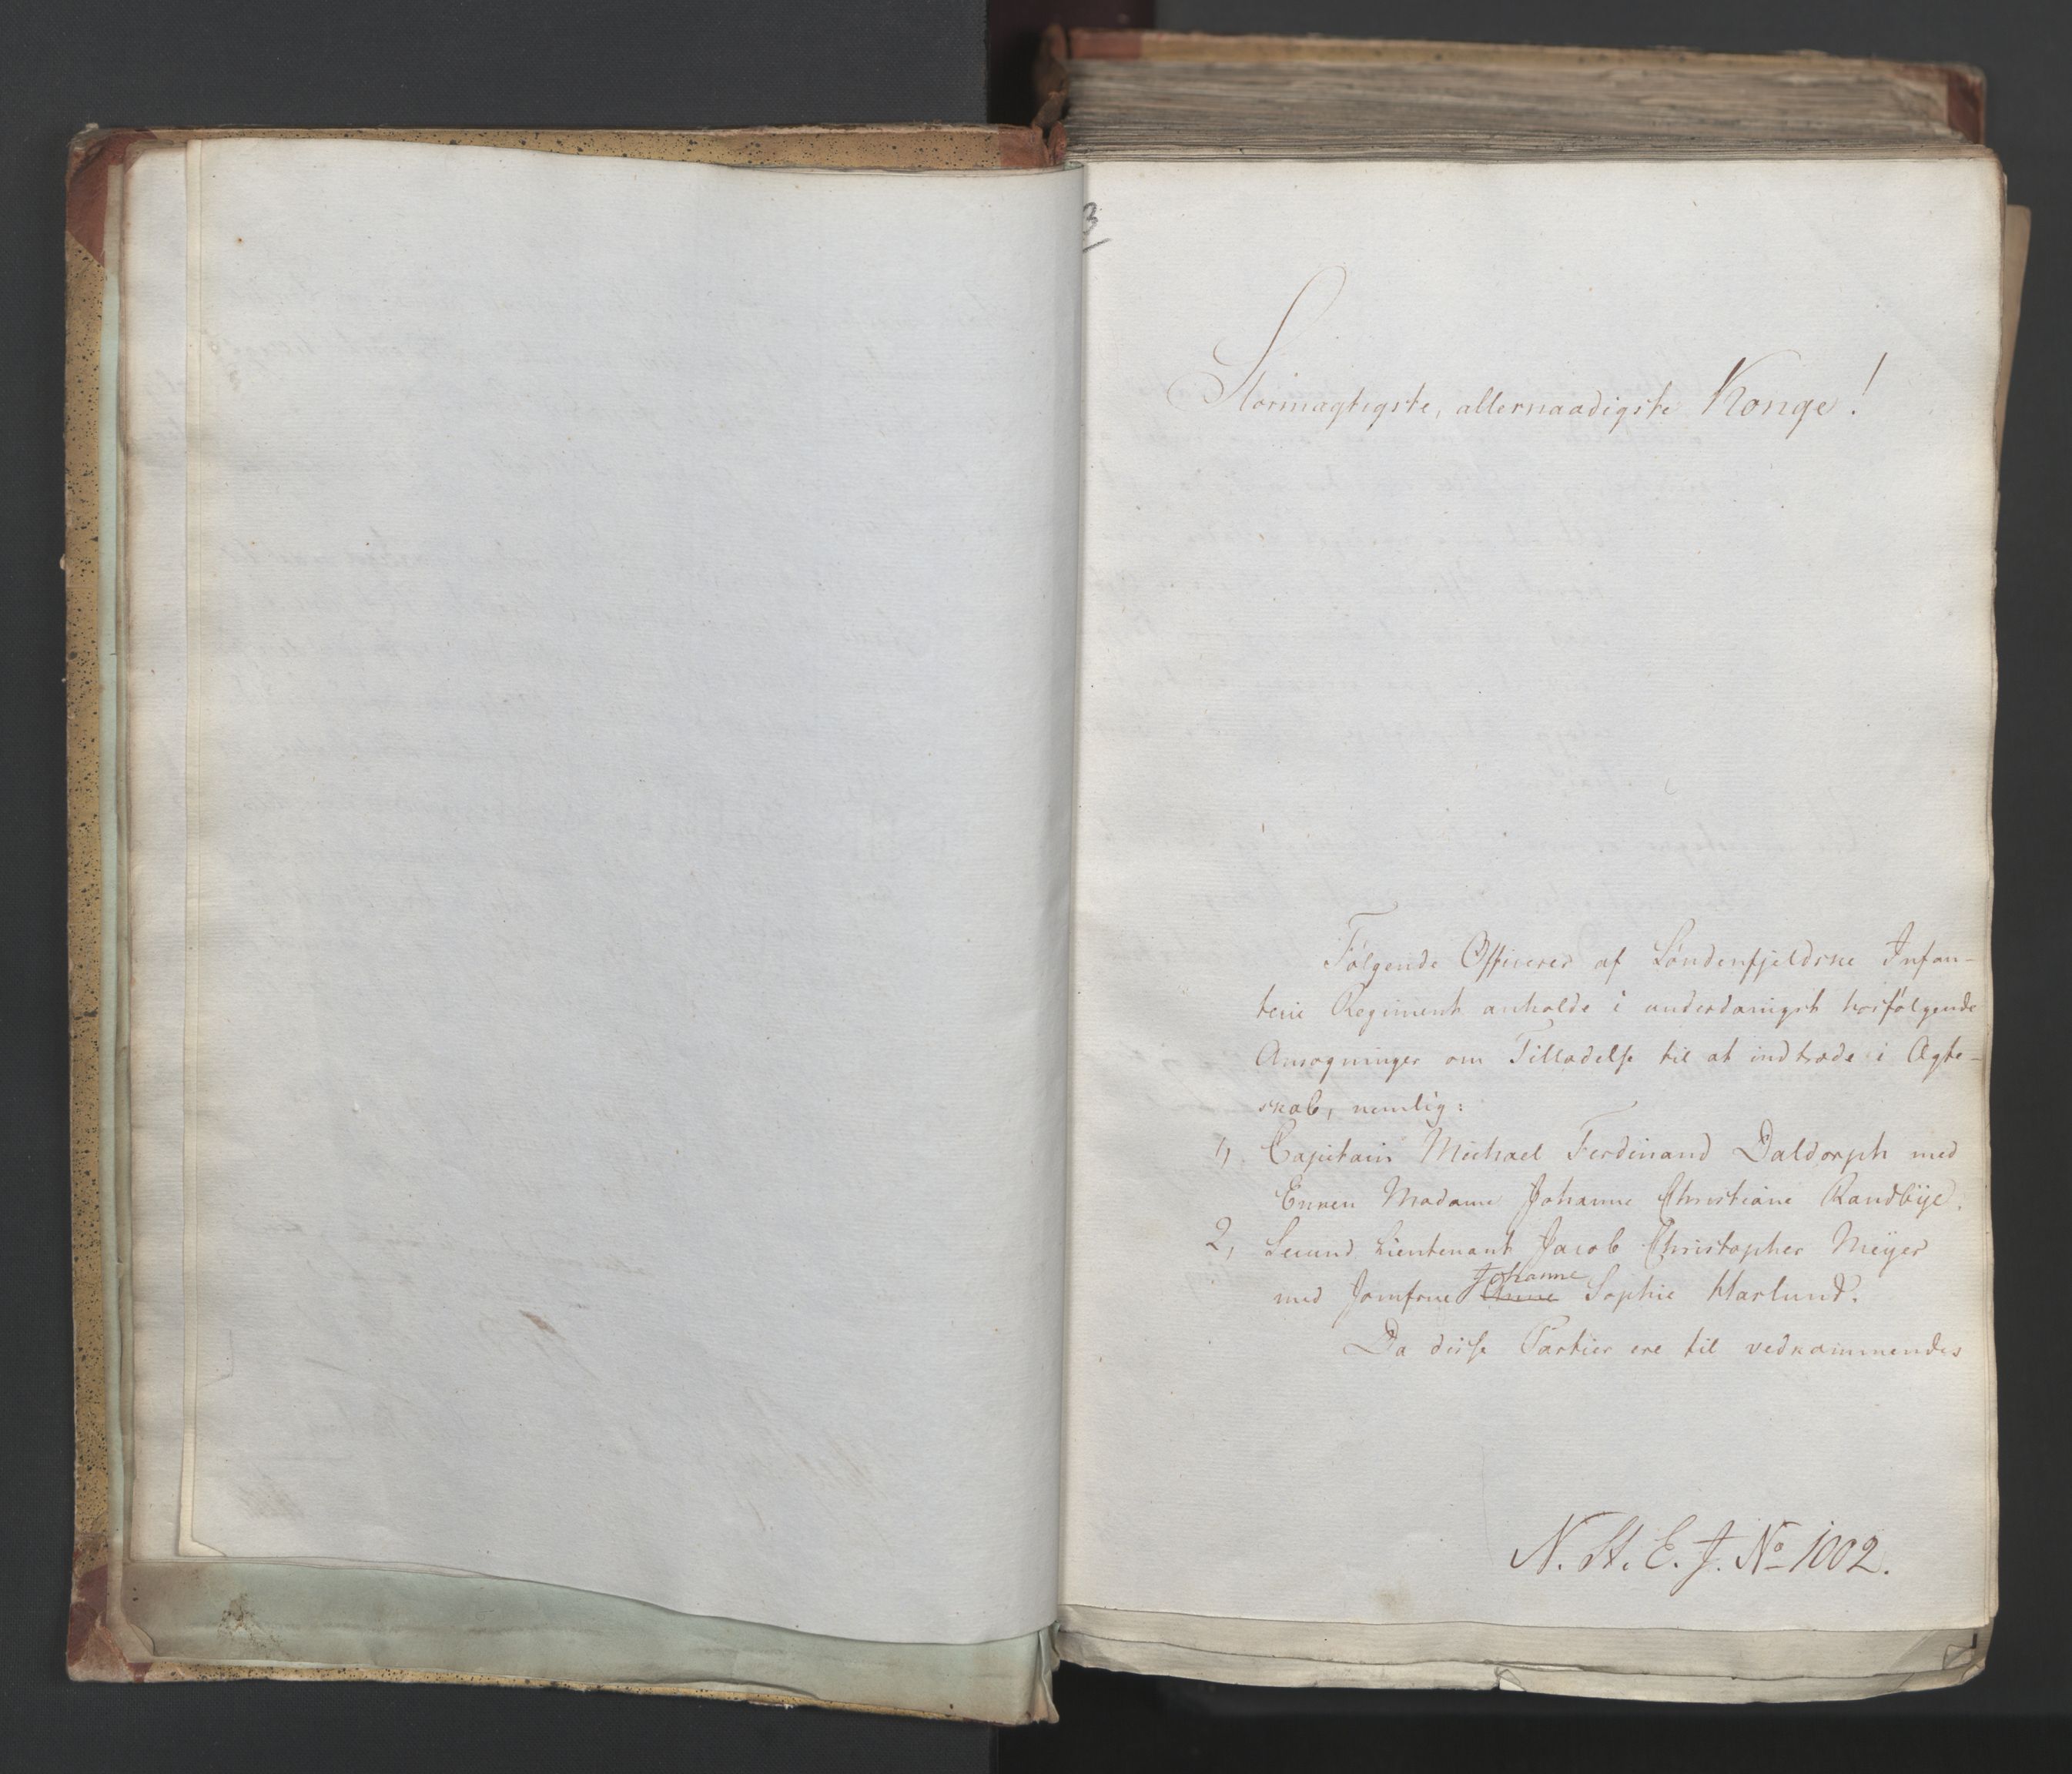 3
Stormægtigste, allernaadigste Konge!
Følgende Officerer af Søndenfjeldske Infan-
terie Regiment anholde i underdanigst hosfølgende
Ansøgninger om Tilladelse til at indtræde i Ægte-
skab, nemlig:
1, Capitain Michael Ferdinand Daldorph med
Enken Madame Johanne Christiane Randbÿe.
2, Secund Lieutenant Jacob Christopher Meÿer
Johanne
med Jomfrue Anne Sophie Harlund.
Da disse Partier ere til vedkommendes
N. St. E. J. No 1002.